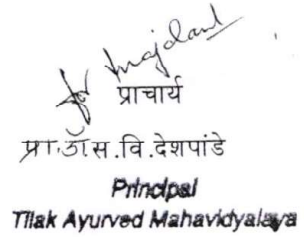 प्राचार्य
प्रा.डॉ.स.वि.देशपांडे
Principal
Tilak Ayurved Mahavidyalaya